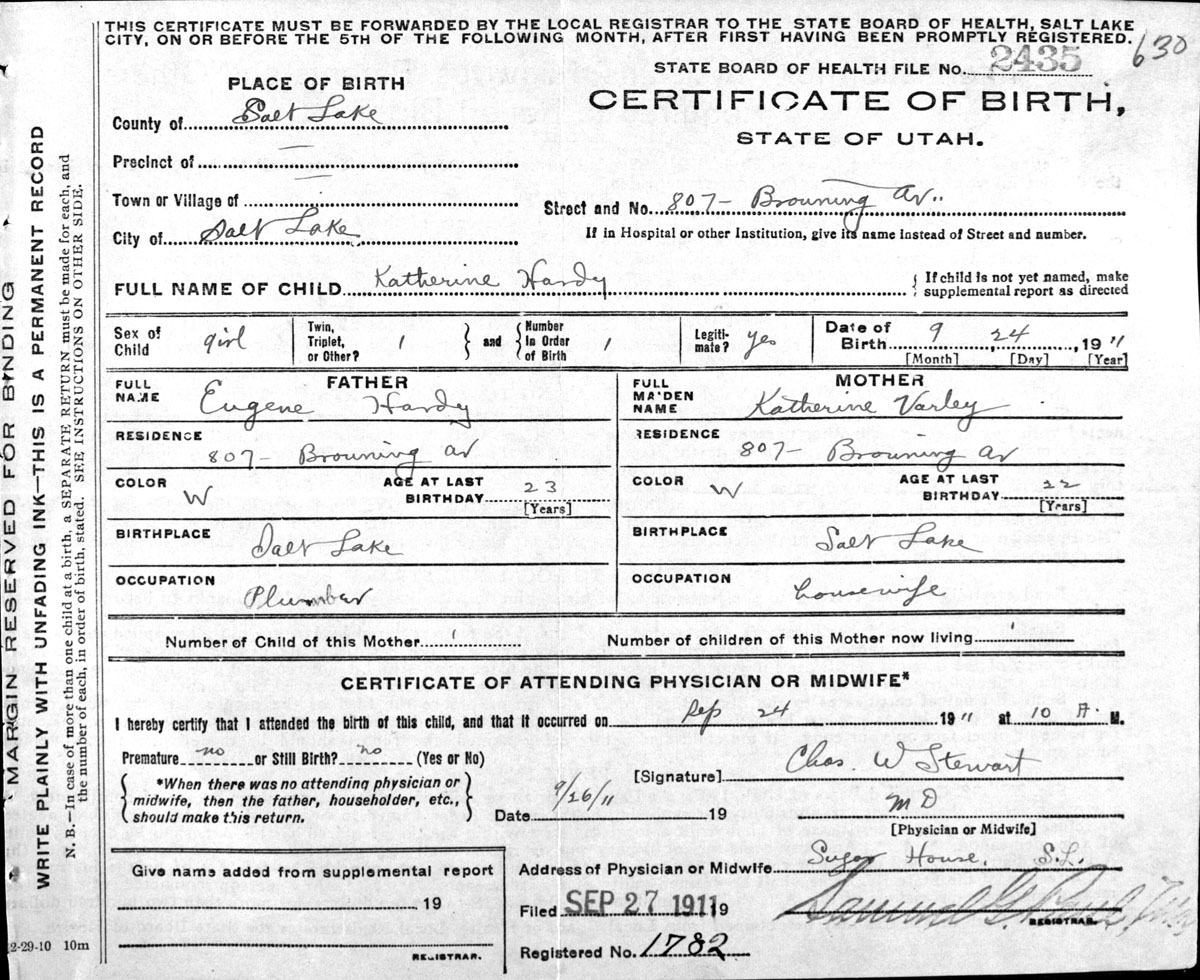 THIS CERTIFICATE MUST BE FORWARDED BY THE LOCAL REGISTRAR TO THE STATE BOARD OF HEALTH, SALT LAKE
CITY, ON OR BEFORE THE 5TH OF THE FOLLOWING MONTH, AFTER FIRST HAVING BEEN PROMPTLY REGISTERED.
630
STATE BOARD OF HEALTH FILE No. 2435
CERTIFICATE OF BIRTH,
STATE OF UTAH.
PLACE OF BIRTH
County of Salt Lake
Precinct of —
Town or Village of —
City of Salt Lake
Street and No. 807- Browning Av.
If in Hospital or other Institution, give its name instead of Street and number.
FULL NAME OF CHILD Katherine Hardy
{ If child is not yet named, make
supplemental report as directed
Sex of
Child girl
Twin,
Triplet,
or Other? 1
} and {
Number
in Order
of Birth 1
Legiti-
mate? yes
Date of
Birth 9 , 24 , 19 11
[Month] [Day] [Year]
FATHER
FULL
NAME Eugene Hardy
RESIDENCE 807- Browning Av
COLOR W
AGE AT LAST
BIRTHDAY 23
[Years]
BIRTHPLACE Salt Lake
OCCUPATION Plumber
MOTHER
FULL
MAIDEN
NAME Katherine Varley
RESIDENCE 807- Browning Av
COLOR W
AGE AT LAST
BIRTHDAY 22
[Years]
BIRTHPLACE Salt Lake
OCCUPATION housewife
Number of Child of this Mother 1
Number of children of this Mother now living 1
CERTIFICATE OF ATTENDING PHYSICIAN OR MIDWIFE*
I hereby certify that I attended the birth of this child, and that it occurred on Sep 24 19 11 at 10 A. M.
Premature no or Still Birth? no (Yes or No)
{ *When there was no attending physician or
midwife, then the father, householder, etc.,
should make this return. }
[Signature] Chas. W Stewart
Date 9/26/11 19
M D
[Physician or Midwife]
Give name added from supplemental report
19
REGISTRAR.
Address of Physician or Midwife Sugar House, S.L.
Filed SEP 27 1911 19
Samuel G. Paul
REGISTRAR.
Registered No. 1782
2-29-10 10m
MARGIN RESERVED FOR BINDING
WRITE PLAINLY WITH UNFADING INK—THIS IS A PERMANENT RECORD
N. B.—In case of more than one child at a birth, a SEPARATE RETURN must be made for each, and
the number of each, in order of birth, stated. SEE INSTRUCTIONS ON OTHER SIDE.